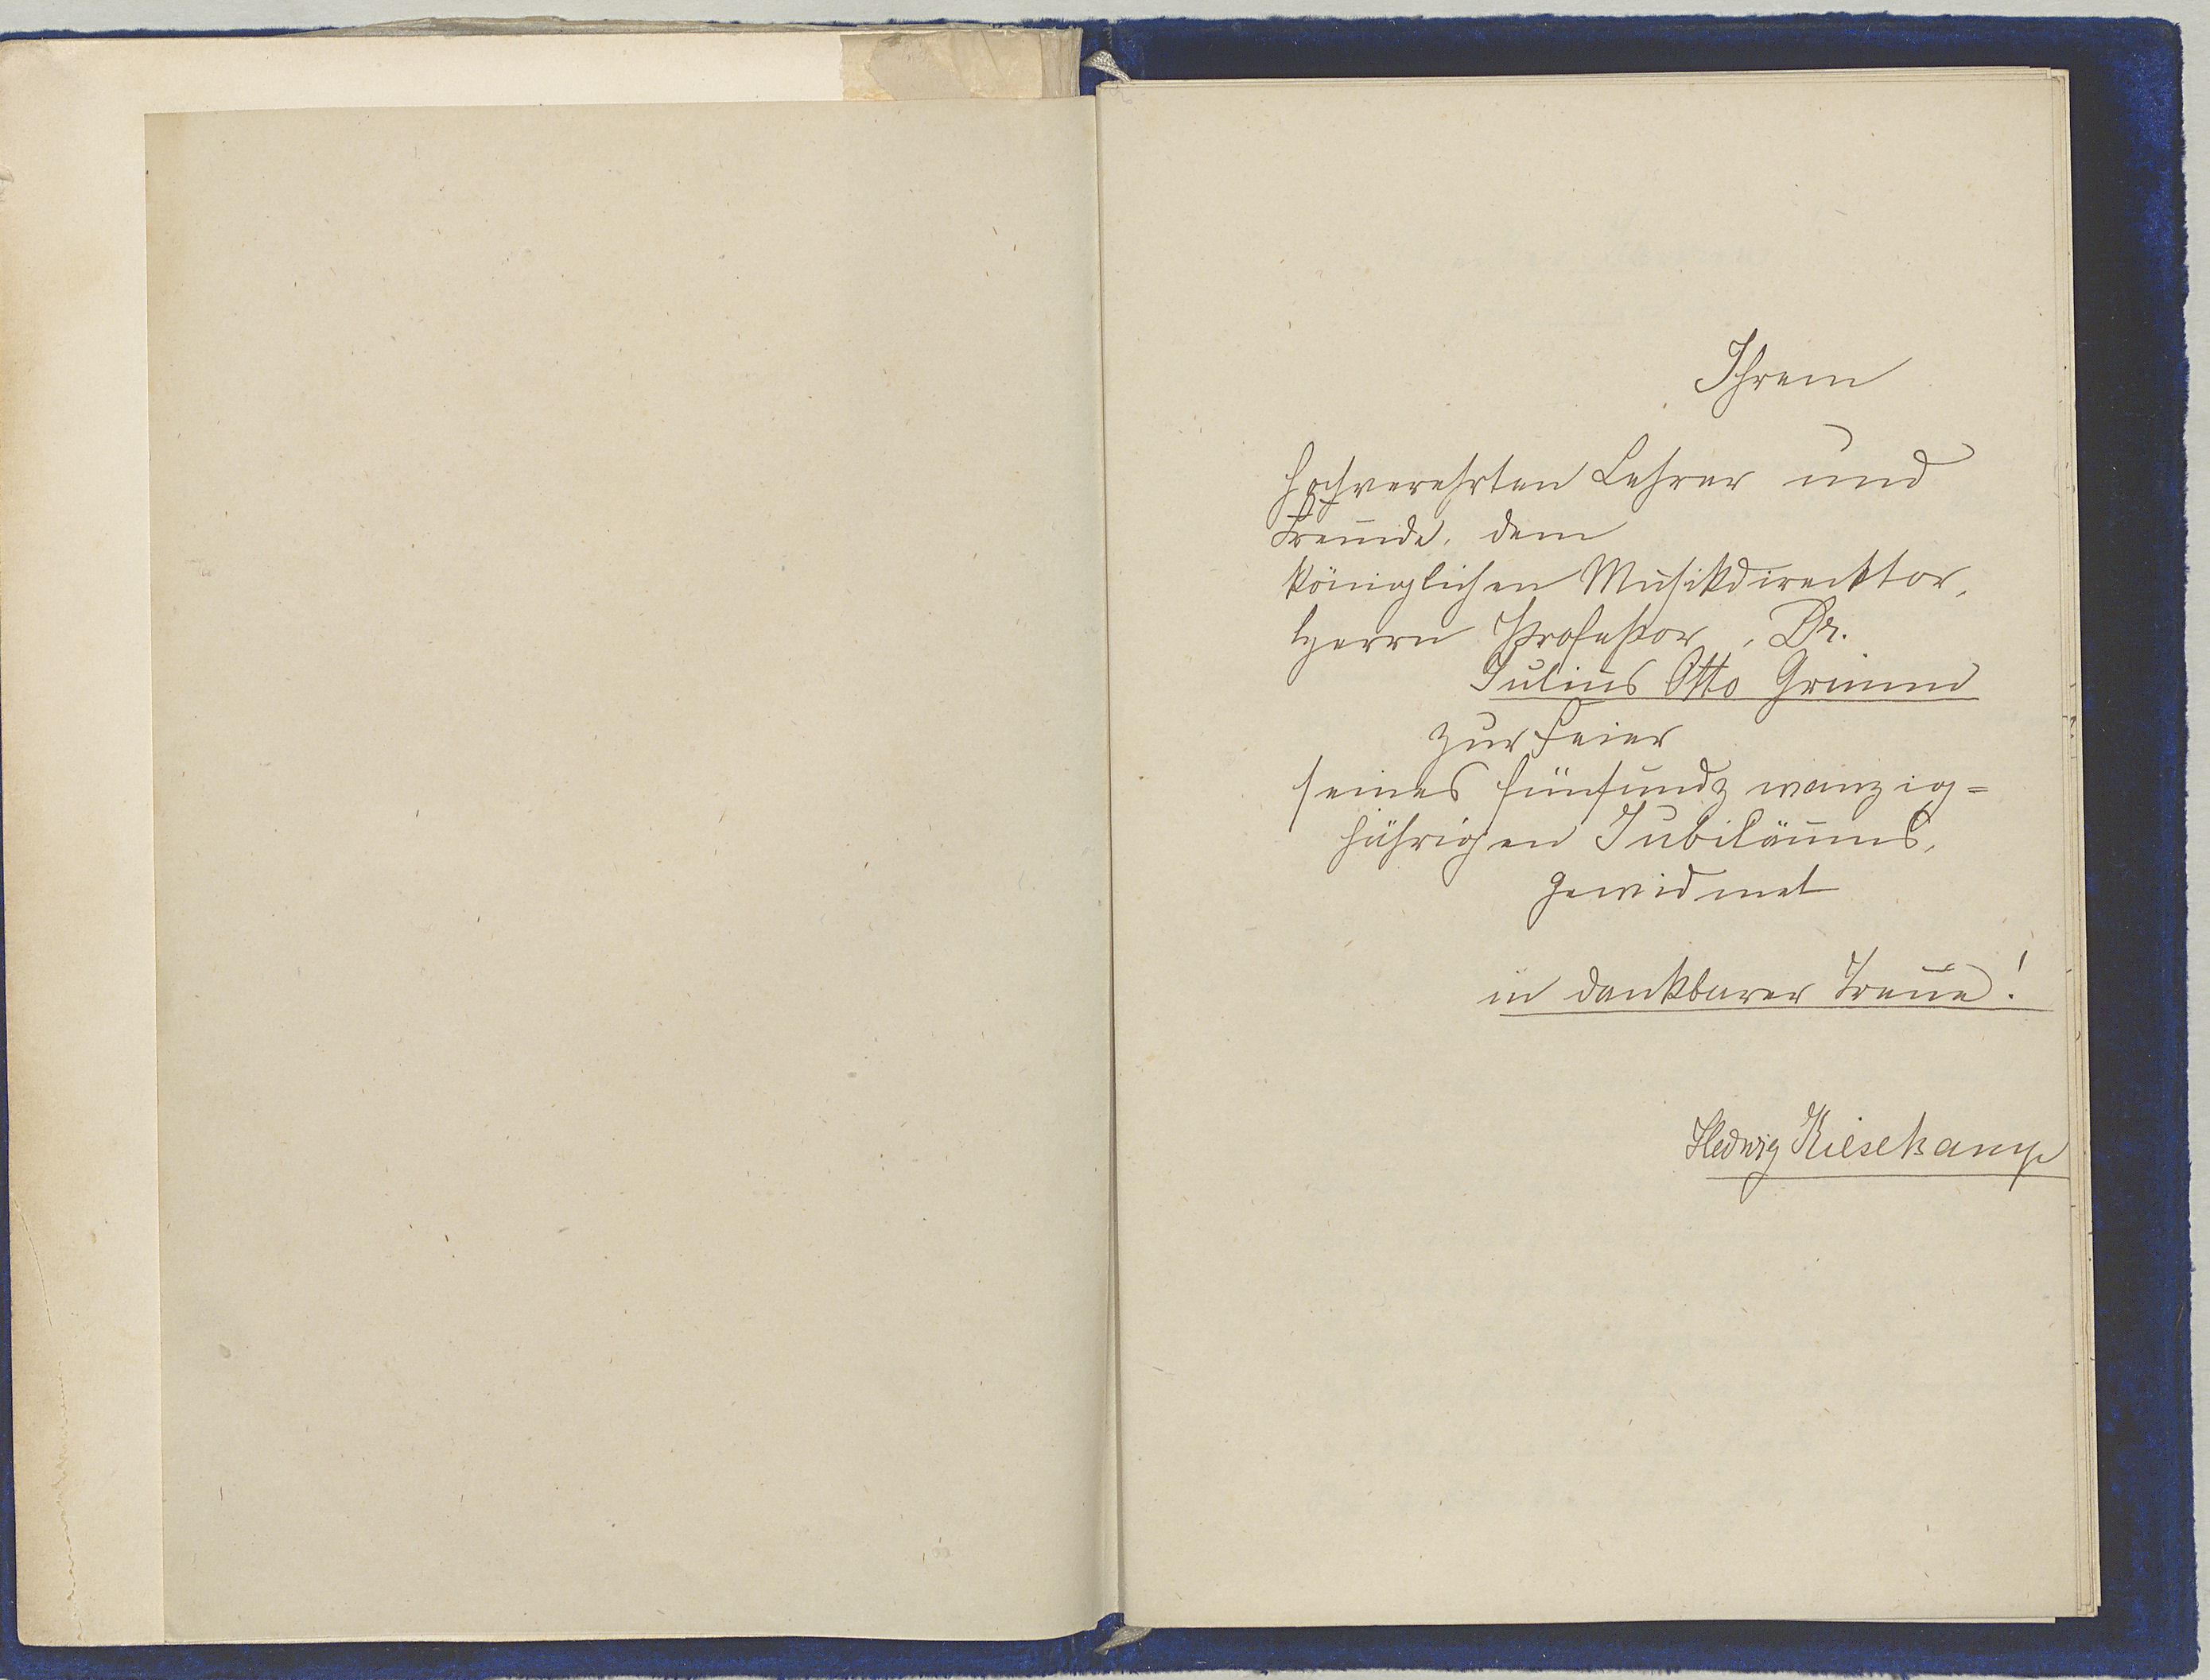 Ihrem
hochverehrten Lehrer und
Freunde, dem
königlichen Musikdirecktor,
Herrn Professor, Dr.
Julius Otto Grimm
zur Feier
seines fünfundzwanzig=
jährigen Jubiläums,
gewidmet
in dankbarer Treue!
Hedwig Kiesekamp